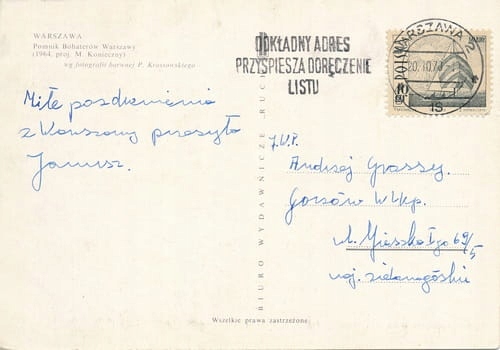 WARSZAWA
Pomnik Bohaterów Warszawy
(1964, proj. M. Konieczny)
wg fotografii barwnej P. Krassowskiego
DOKŁADNY ADRES
PRZYŚPIESZA DORĘCZENIE
LISTU
WARSZAWA 2
20.10.7
19
POLSKA
10
GR
Miłe pozdrowienia
z Warszawy przesyła
Janusz.
J.W.P.
Andrzej Grassy.
Gorzów Wlkp.
ul. Mieszka I go 69/5
woj. zielonogórskie
BIURO WYDAWNICZE „RUCH”
Wszelkie prawa zastrzeżone